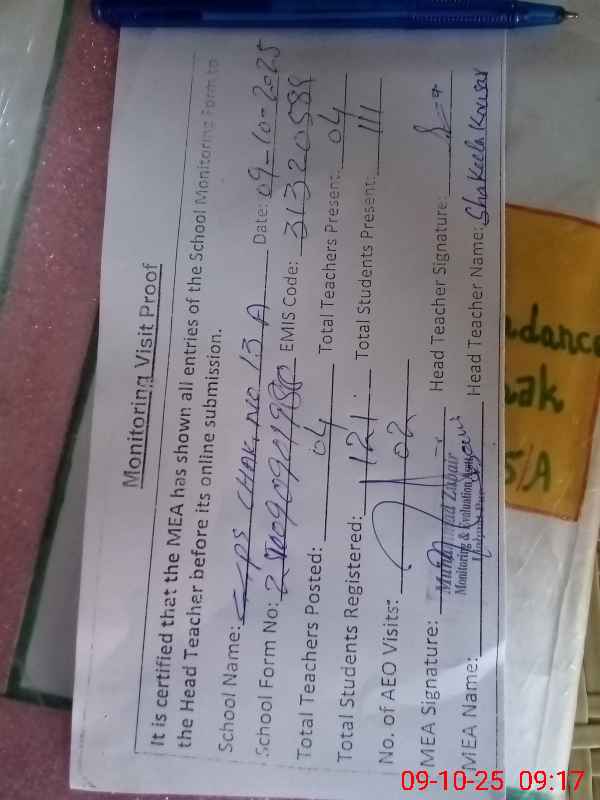 Monitoring Visit Proof
It is certified that the MEA has shown all entries of the School Monitoring Form to
the Head Teacher before its online submission.
School Name: GPS CHAK. NO 13 A Date: 09-10-2025
School Form No: EMIS Code: 31320588
Total Teachers Posted: 04 Total Teachers Present: 04
Total Students Registered: 121 Total Students Present: 111
No. of AEO Visits: 02
MEA Signature: Head Teacher Signature:
Muhammad Zubair
Monitoring & Evaluation
MEA Name: Head Teacher Name: Shakeela Kausar
ndance
hak
5/A
09-10-25 09:17